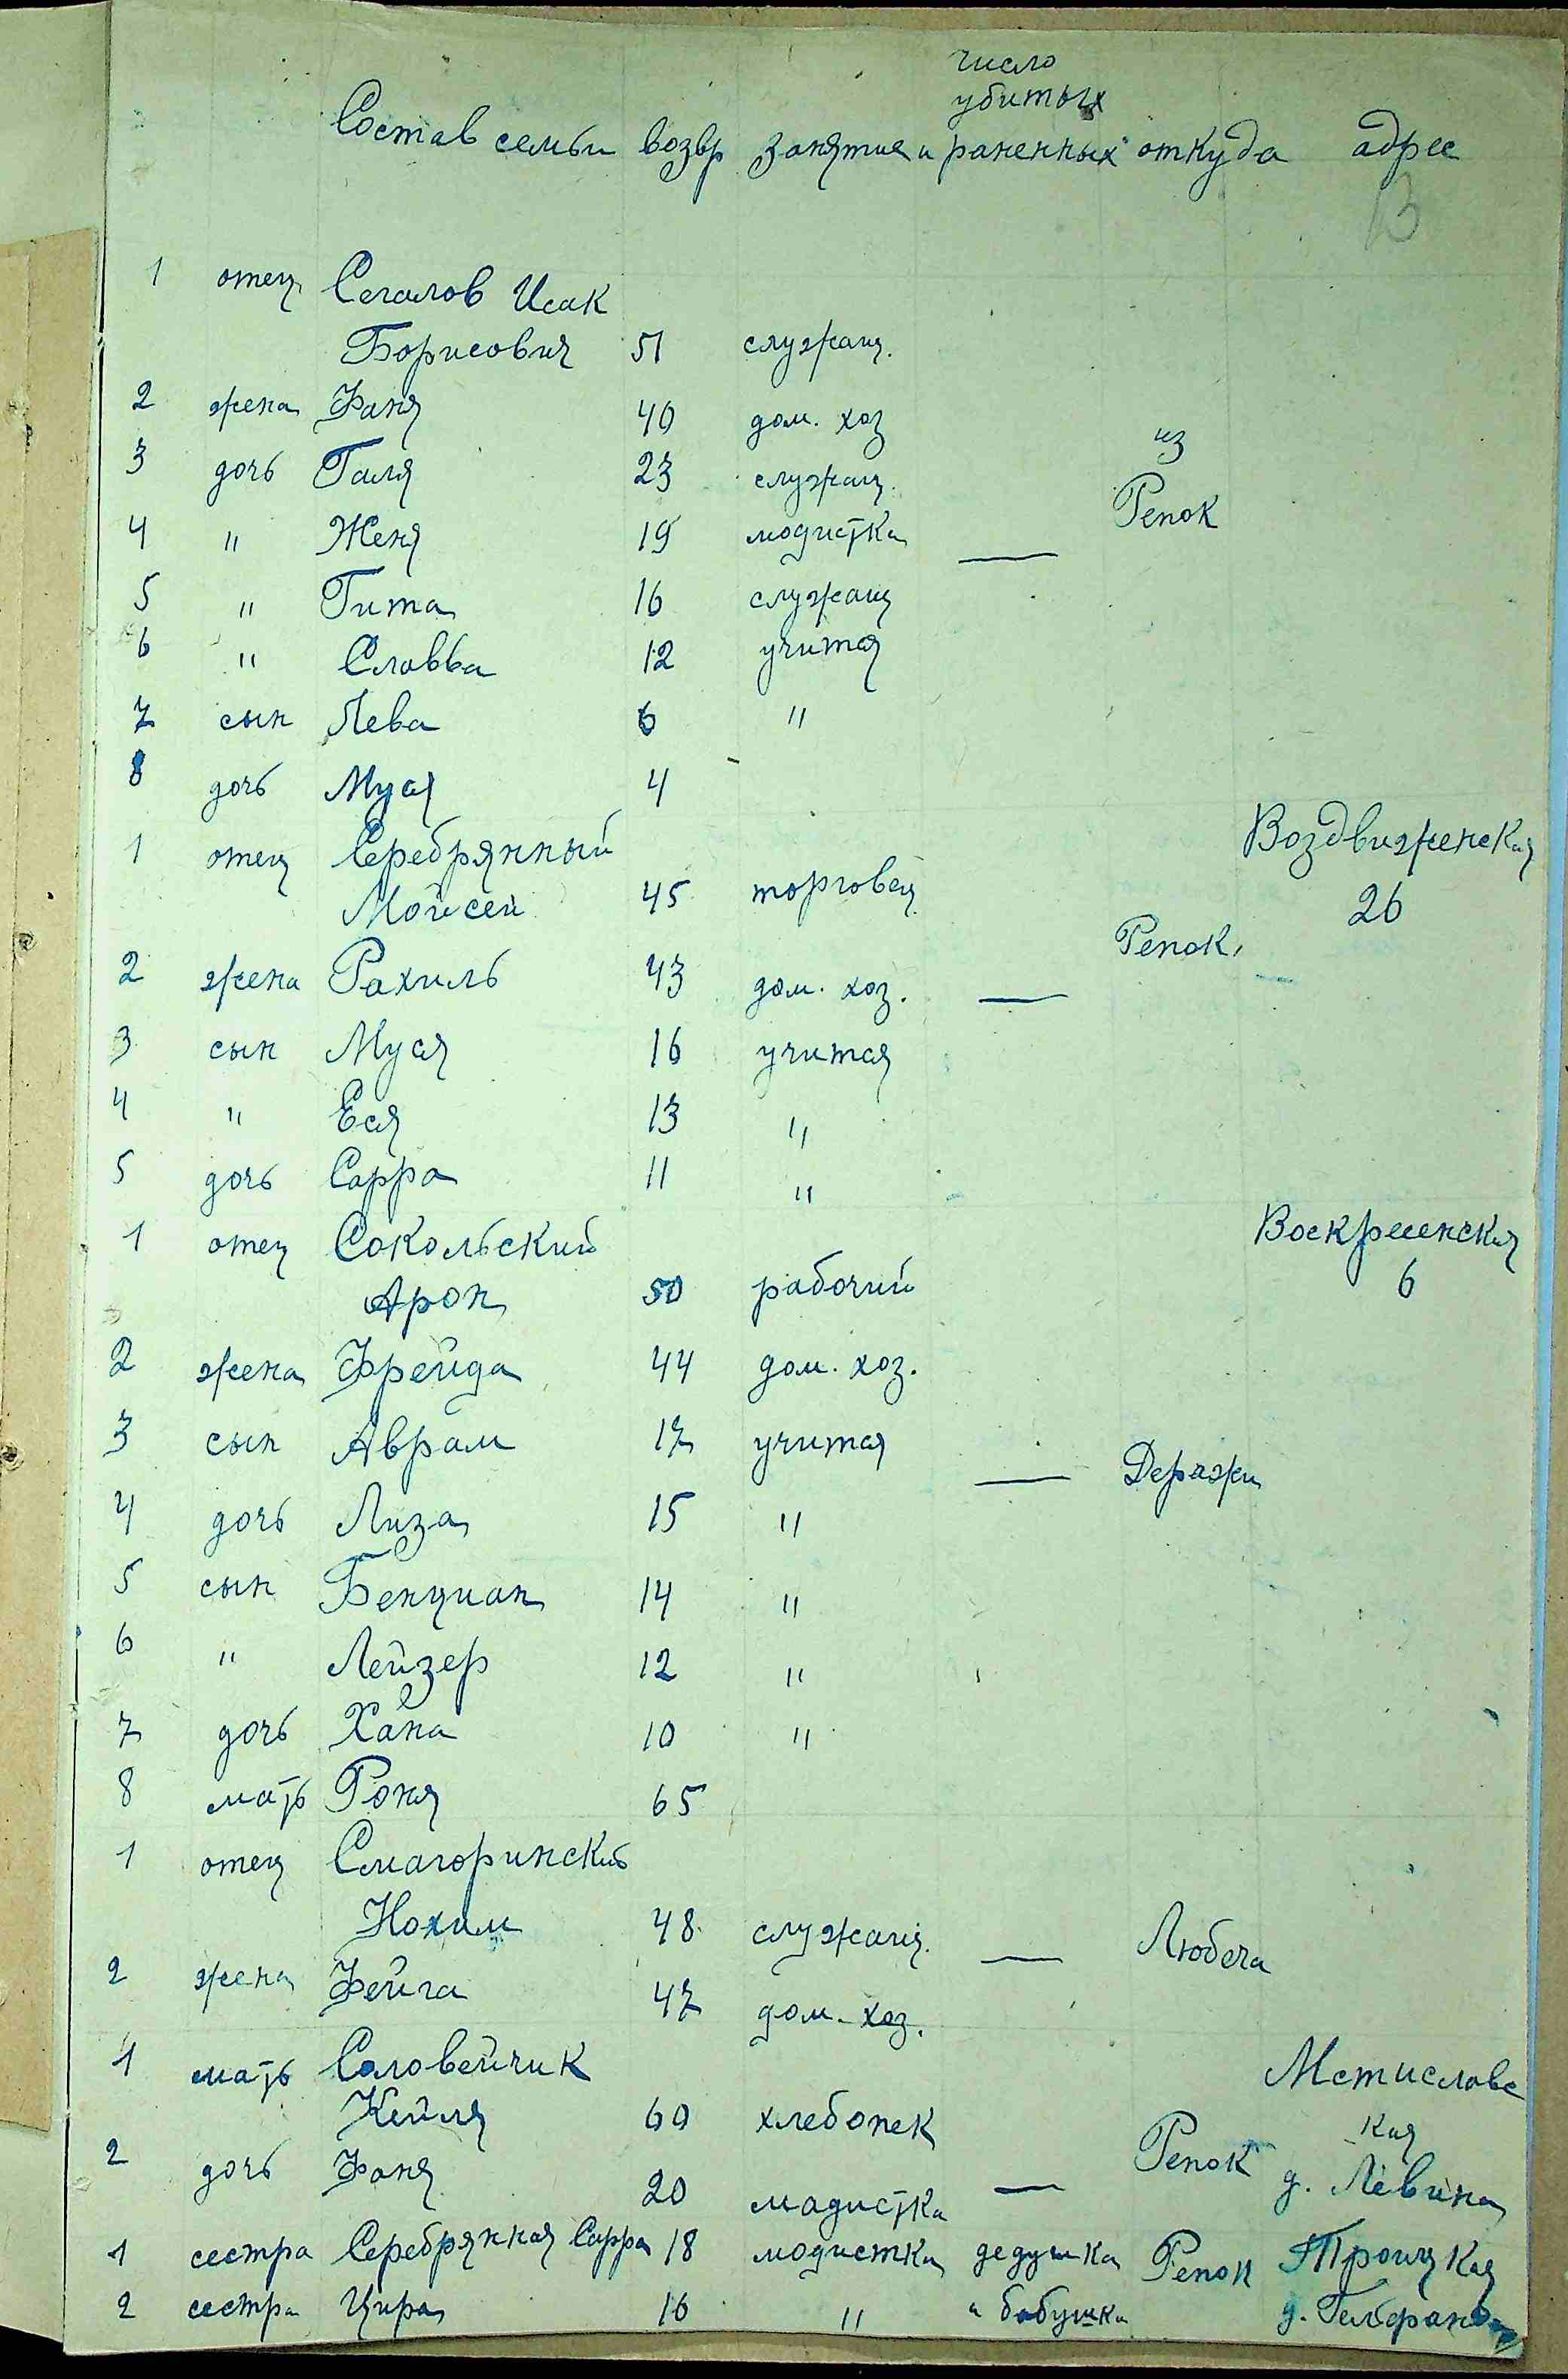 число
убитых
Состав семьи возвр занятие и раненных откуда адрес
13
1 отец Сегалов Исак
Борисович 51 служащ.
2 жена Фаня 40 дом. хоз
из
3 дочь Галя 23 служащ.
Репок
4 " Женя 19 модистка —
5 " Гита 16 служащ
6 " Славва 12 учится
7 сын Лева 6 "
8 дочь Муся 4
1 отец Серебрянный Воздвиженская
Мойсей 45 торговец 26
Репок,
2 жена Рахиль 43 дом. хоз. —
3 сын Муся 16 учится
4 " Еся 13 "
5 дочь Сарра 11 "
1 отец Сокольский Воскресенская
Арон 50 рабочий 6
2 жена Фрейда 44 дом. хоз.
3 сын Аврам 17 учится — Деражи
4 дочь Лиза 15 "
5 сын Бенциан 14 "
6 " Лейзер 12 "
7 дочь Хана 10 "
8 мать Роня 65
1 отец Смагоринский
Нохим 48 служащ. — Любеча
2 жена Фейга 47 дом. хоз.
1 мать Соловейчик Мстиславс
Кейля 60 хлебопек кая
2 дочь Фаня 20 мадистка — Репок д. Левина
1 сестра Серебрянная Сарра 18 модистка дедушка Репок Троицкая
2 сестра Цира 16 " и бабушка д.